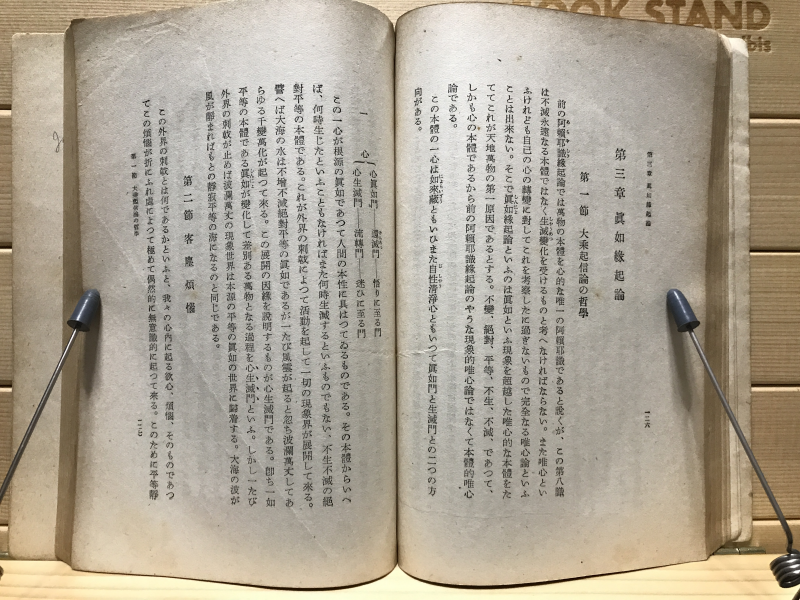 OOK STAND
bis
第三章 眞如緣起論
一二六
第三章 眞如緣起論
第一節 大乘起信論の哲學
前の阿賴耶識緣起論では萬物の本體を心的な唯一の阿賴耶識であると說くが、この第八識
は不滅永遠なる本體ではなく生滅變化を受けるものと考へなければならない。また唯心とい
ふけれども自己の心の轉變に對してこれを考察したに過ぎないもので完全なる唯心論といふ
ことは出來ない。そこで眞如緣起論といふのは眞如といふ現象を超越した唯心的な本體をた
ててこれが天地萬物の第一原因であるとする。不變、絕對、平等、不生、不滅、であつて、
しかも心の本體であるから前の阿賴耶識緣起論のやうな現象的唯心論ではなくて本體的唯心
論である。
この本體の一心は如來藏ともいひまた自性淸淨心ともいつて眞如門と生滅門との二つの方
向がある。
一心
心眞如門——還滅門——悟りに至る門
心生滅門——流轉門——迷ひに至る門
この一心が根源の眞如であつて人間の本性に具はつてゐるものである。その本體からいへ
ば、何時生じたといふこともなければまた何時生滅するといふものでもない、不生不滅の絕
對平等の本體である。これが外界の刺戟によつて活動を起して一切の現象界が展開して來る。
譬へば大海の水は不增不滅絕對平等の眞如であるが一たび風雲が起ると忽ち波瀾萬丈してあ
らゆる千變萬化が起つて來る。この展開の因緣を說明するものが心生滅門である。卽ち一如
平等の本體である眞如が變化して差別ある萬物となる過程を心生滅門といふ。しかし一たび
外界の刺戟が止めば波瀾萬丈の現象世界は本源の平等の眞如の世界に歸着する。大海の波が
風が靜まればもとの靜寂平等の海になるのと同じである。
第二節 客塵煩惱
この外界の刺戟とは何であるかといふと、我々の心內に起る欲心、煩惱、そのものであつ
てこの煩惱が折にふれ處によつて極めて偶然的に無意識的に起つて來る。このために平等靜
第一節 大乘起信論の哲學
一二七